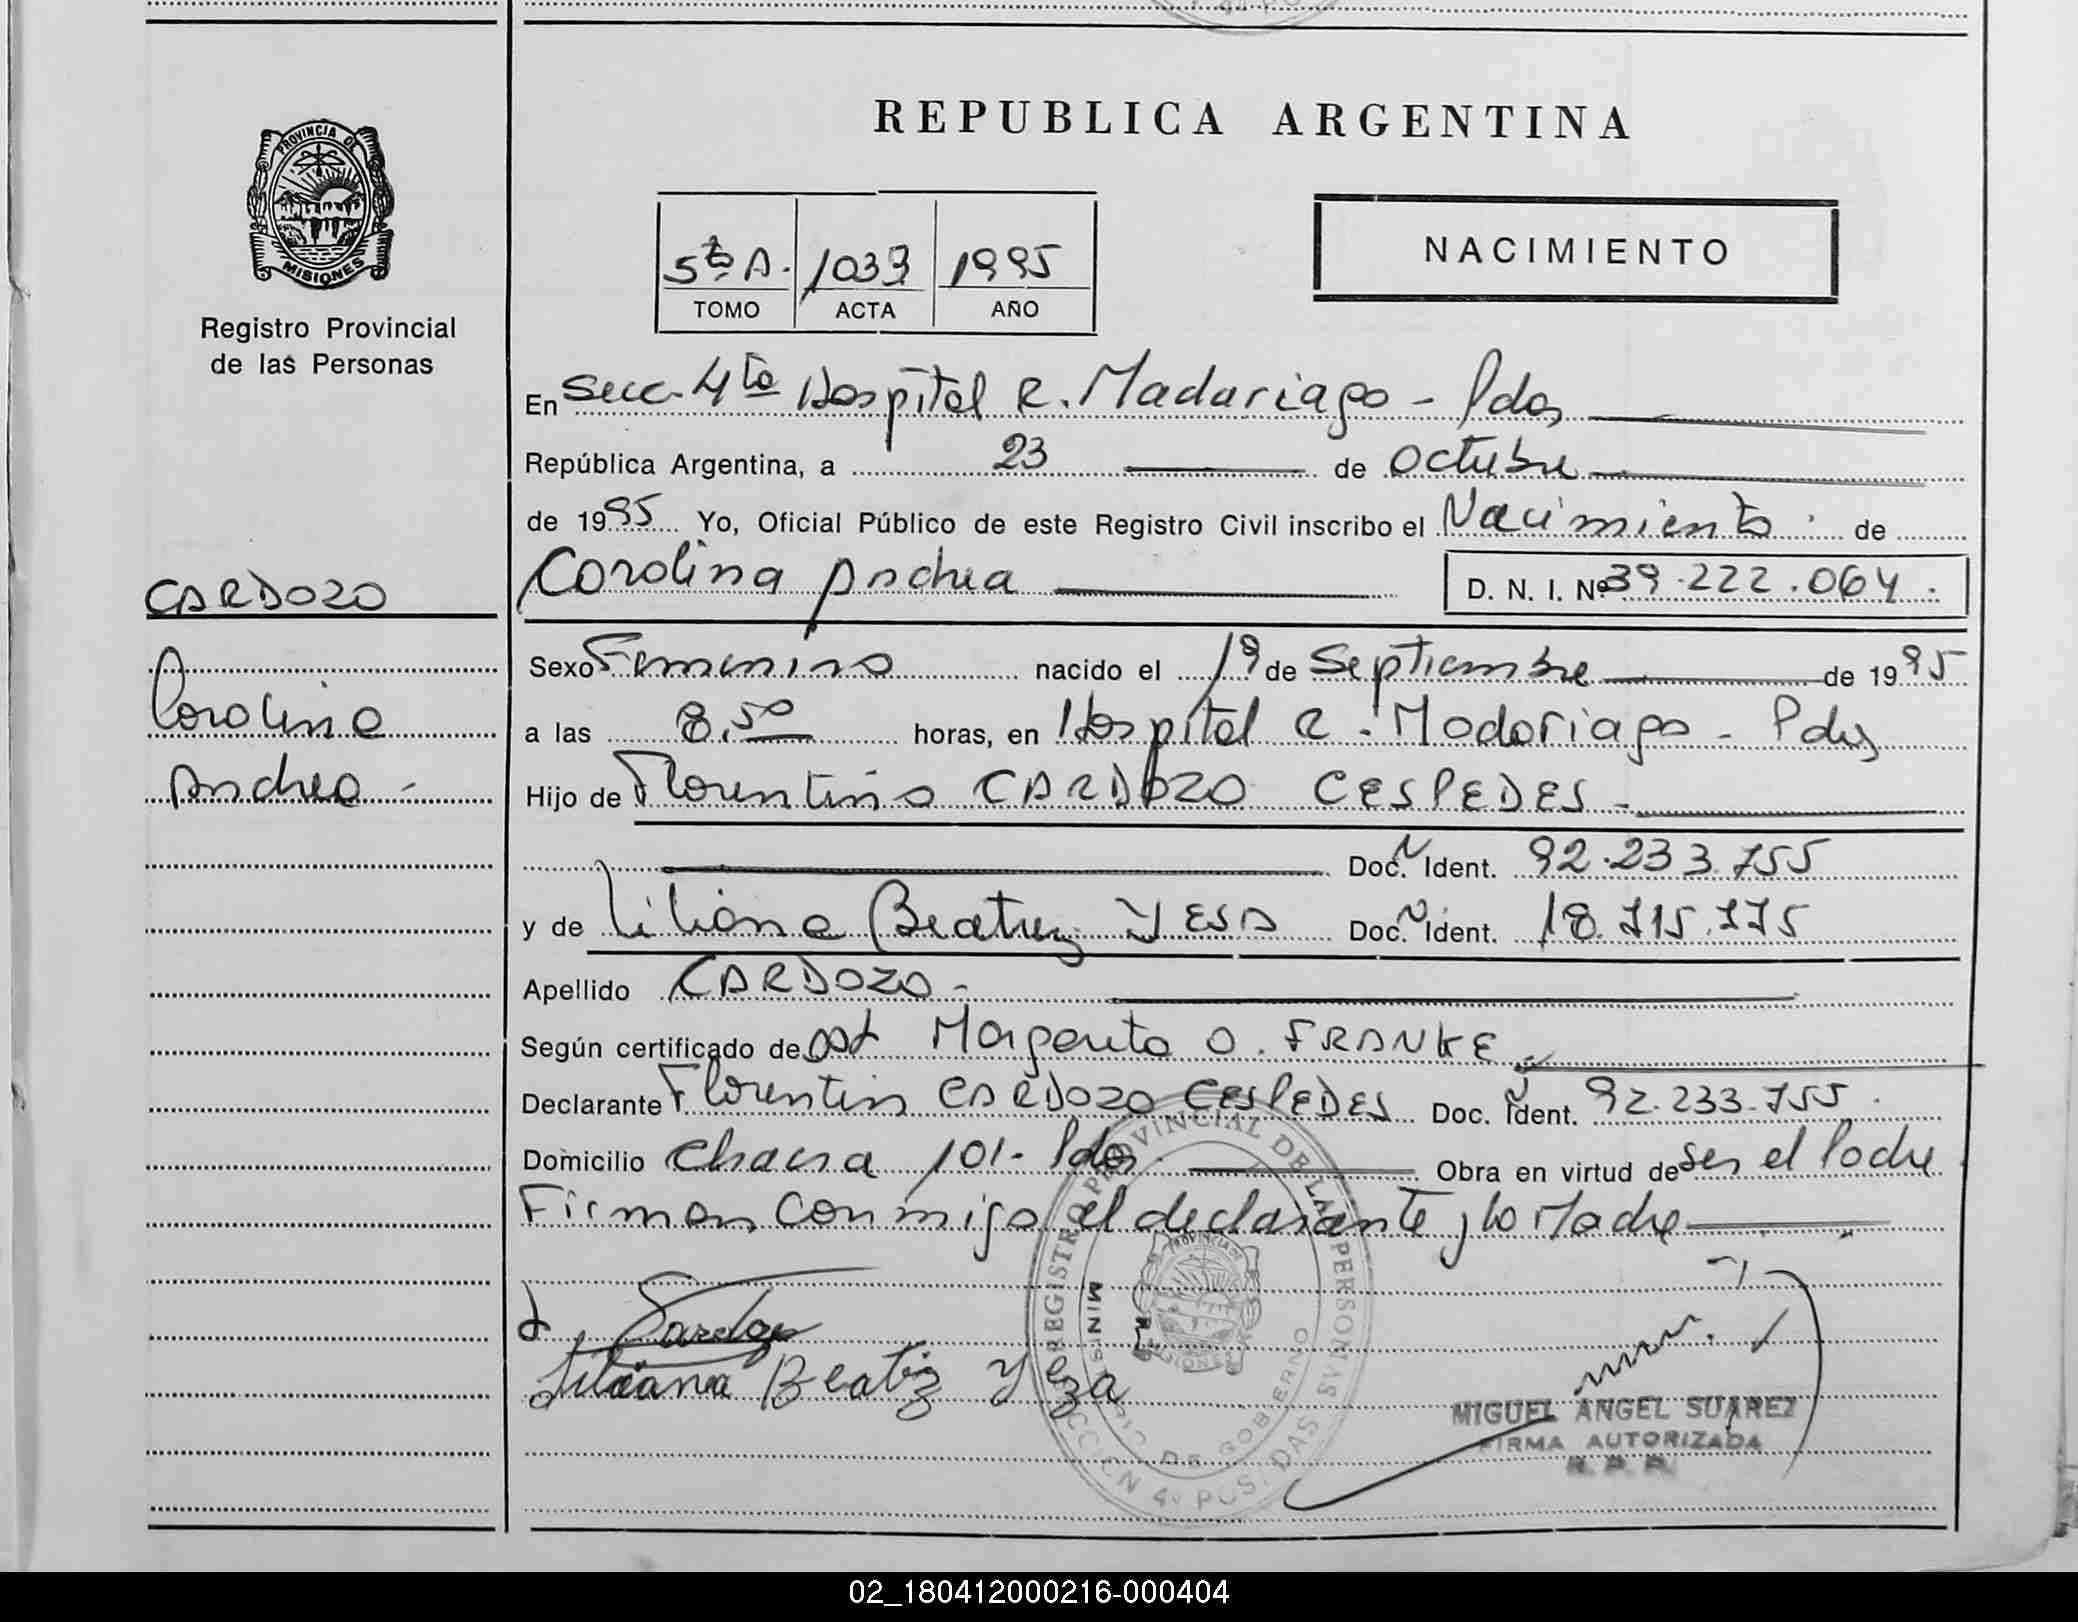 REPUBLICA ARGENTINA
PROVINCIA DE
MISIONES
Registro Provincial
de las Personas
5to A. 1033 1995
TOMO ACTA AÑO
NACIMIENTO
En Secc. 4ta Hospital R. Madariaga - Pdas
República Argentina, a 23 de Octubre
de 1995 Yo, Oficial Público de este Registro Civil inscribo el Nacimiento de
CARDOZO
Carolina Andrea
Carolina Andrea -
D. N. I. Nº 39.222.064.
Sexo Femenino nacido el 19 de Septiembre de 1995
a las 8,50 horas, en Hospital R. Madariaga - Pdas
Hijo de Florentino CARDOZO CESPEDES -
Doc. N Ident. 92.233.755
y de Liliana Beatriz YESA Doc. N Ident. 18.715.775
Apellido CARDOZO -
Según certificado de Obst Margarita O. FRANKE
Declarante Florentin CARDOZO CESPEDES Doc. Ident. 92.233.755.
Domicilio Chacra 101 - Pdas. Obra en virtud de ser el Padre
Firman conmigo el declarante y la Madre
Liliana Beatriz Yeza
REGISTRO PROVINCIAL DE LAS PERSONAS
MINISTERIO DE GOBIERNO
SECCION 4º POSADAS
PROVINCIA DE
MISIONES
MIGUEL ANGEL SUAREZ
FIRMA AUTORIZADA
R. P. P.
02_180412000216-000404